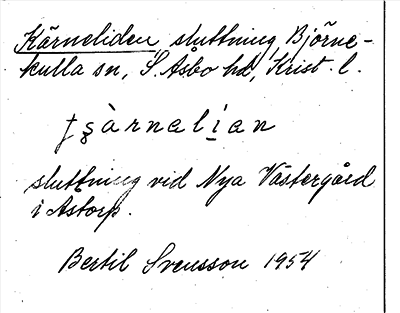 Kärneliden, sluttning, Björne-
kulla sn, S. Åsbo hd, Krist. l.
tʂàrnelian
sluttning vid Nya Västergård
i Åstorp.
Bertil Svensson 1954